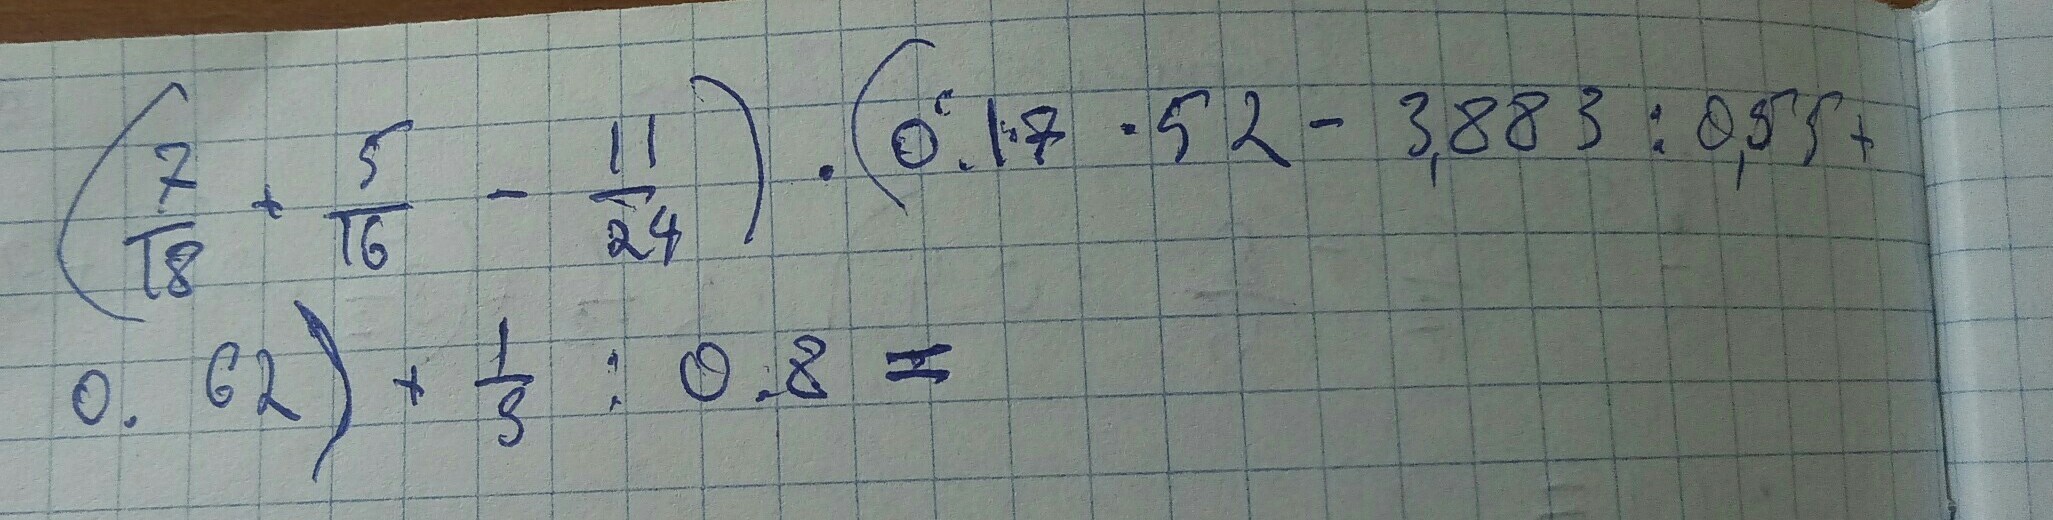 (7/18 + 5/16 - 11/24) · (0.17 · 52 - 3,883 : 0,55 +
0.62) + 1/3 : 0.8 =